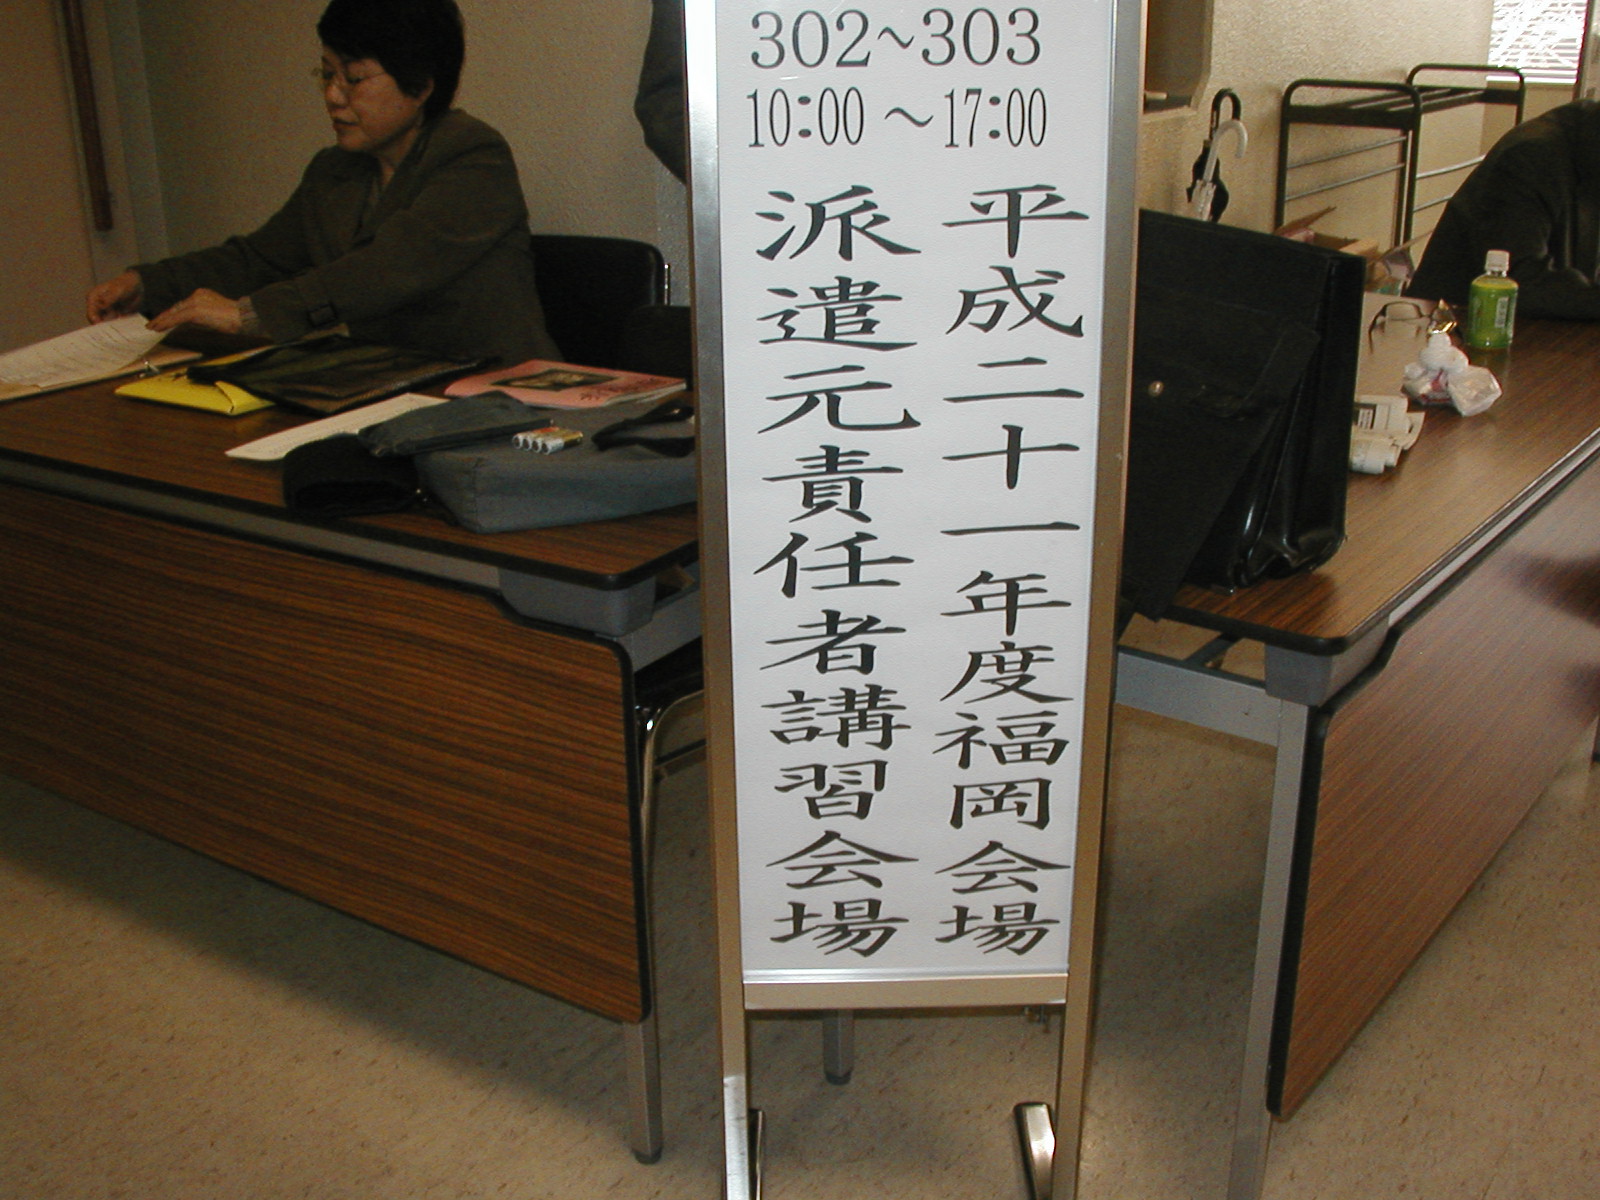 302～303
10:00～17:00
平成二十一年度福岡会場
派遣元責任者講習会場